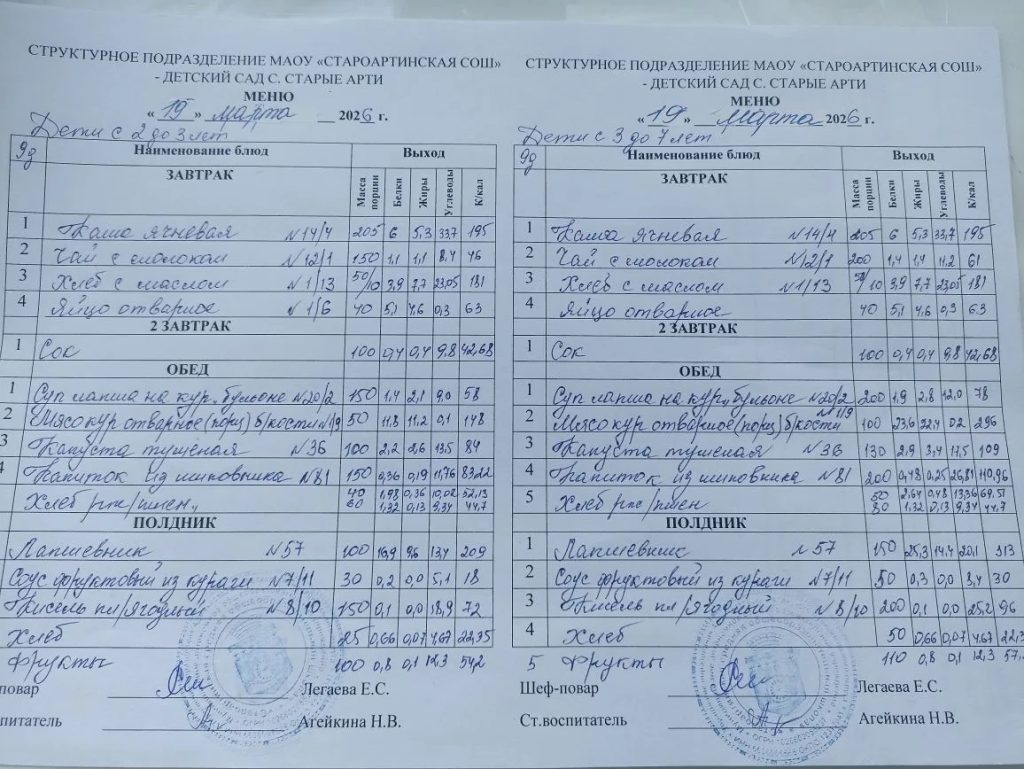 СТРУКТУРНОЕ ПОДРАЗДЕЛЕНИЕ МАОУ «СТАРОАРТИНСКАЯ СОШ»
- ДЕТСКИЙ САД С. СТАРЫЕ АРТИ
МЕНЮ
« 19 » марта 2026 г.
Дети с 2 до 3 лет
9д Наименование блюд Выход
ЗАВТРАК Масса порции Белки Жиры Углеводы К/кал
1 Каша ячневая №14/4 205 6 5,3 33,7 195
2 Чай с молоком №12/1 150 1,1 1,1 8,4 46
3 Хлеб с маслом №1/13 50/10 3,9 7,7 23,05 181
4 Яйцо отварное №1/6 40 5,1 4,6 0,3 63
2 ЗАВТРАК
1 Сок 100 0,4 0,4 9,8 42,68
ОБЕД
1 Суп лапша на кур. бульоне №20/2 150 1,4 2,1 9,0 58
2 Мясо кур отварное (порц) б/кости №1/9 50 11,8 11,2 0,1 148
3 Капуста тушеная №36 100 2,2 2,6 13,5 84
4 Напиток из шиповника №81 150 0,36 0,19 11,76 83,22
Хлеб рж/пшен. 40 1,98 0,36 10,02 52,13
60 1,32 0,13 9,34 44,7
ПОЛДНИК
Лапшевник №57 100 16,9 9,6 13,4 209
Соус фруктовый из кураги №7/11 30 0,2 0,0 5,1 18
Кисель пл/ягодный №8/10 150 0,1 0,0 18,9 72
Хлеб 25 0,66 0,07 4,67 22,35
Фрукты 100 0,8 0,1 12,3 54,2
повар Легаева Е.С.
питатель Агейкина Н.В.
СТРУКТУРНОЕ ПОДРАЗДЕЛЕНИЕ МАОУ «СТАРОАРТИНСКАЯ СОШ»
- ДЕТСКИЙ САД С. СТАРЫЕ АРТИ
МЕНЮ
« 19 » марта 2026 г.
Дети с 3 до 7 лет
9д Наименование блюд Выход
ЗАВТРАК Масса порции Белки Жиры Углеводы К/кал
1 Каша ячневая №14/4 205 6 5,3 33,7 195
2 Чай с молоком №12/1 200 1,4 1,4 11,2 61
3 Хлеб с маслом №1/13 50/10 3,9 7,7 23,05 181
4 Яйцо отварное 40 5,1 4,6 0,3 63
2 ЗАВТРАК
1 Сок 100 0,4 0,4 9,8 42,68
ОБЕД
1 Суп лапша на кур. бульоне №20/2 200 1,9 2,8 12,0 78
2 Мясо кур отварное (порц) б/кости №1/9 100 23,6 22,4 0,2 296
3 Капуста тушеная №36 130 2,9 3,4 17,5 109
4 Напиток из шиповника №81 200 0,48 0,25 26,81 110,96
5 Хлеб рж/пшен 50 2,64 0,48 13,36 69,51
30 1,32 0,13 9,34 44,7
ПОЛДНИК
1 Лапшевник №57 150 25,3 14,4 20,1 313
2 Соус фруктовый из кураги №7/11 50 0,3 0,0 8,4 30
3 Кисель пл/ягодный №8/10 200 0,1 0,0 25,2 96
4 Хлеб 50 0,66 0,07 4,67 22,3
5 Фрукты 110 0,8 0,1 12,3 57,
Шеф-повар Легаева Е.С.
Ст.воспитатель Агейкина Н.В.